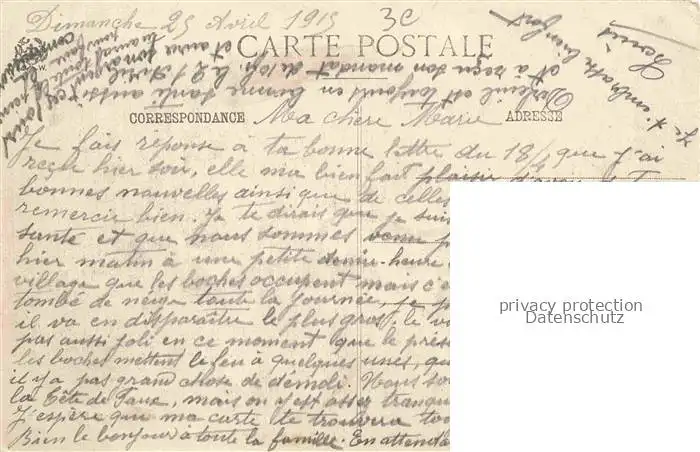 Dimanche 25 Avril 1915
3C
CARTE POSTALE
CORRESPONDANCE
ADRESSE
Ma chère Marie
Je fais réponse à ta bonne lettre du 18/4 que j'ai
reçue hier soir, elle ma bien fait plaisir d'avoir
bonnes nouvelles ainsi que de celles
remercie bien. Je te dirais que je suis
santé et que nous sommes venu
hier matin à une petite demie-heure
village que les boches occupent mais c'e
tombé de neige toute la journée, je p
il va en disparaître le plus gros. le v
pas aussi joli en ce moment que le prése
les boches mettent le feu à quelques unes, qu
il y a pas grand chose de démoli. Nous so
la Tête de Faux, mais on y est assez tranqu
J'espère que ma carte te trouvera tou
Bien le bonjour à toute la famille. En attenda
t'embrasse bien fort
est toujours en bonne santé aussi
et a reçu son mandat de 10f. le 21 Avril
privacy protection
Datenschutz